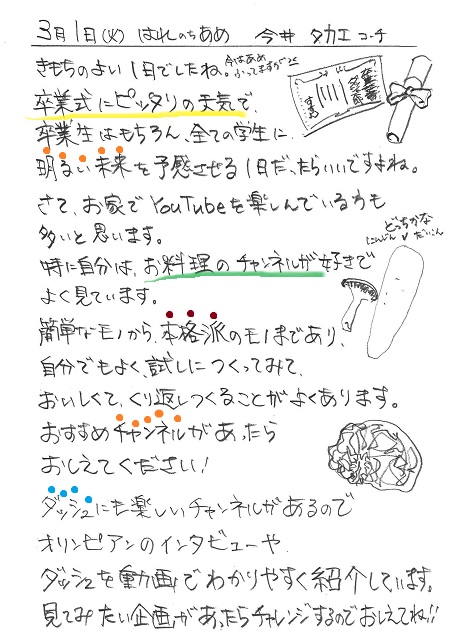 3月1日(火) はれのちあめ 今井 タカエ コーチ
きもちのよい1日でしたね。今はあめふってますが
卒業式にピッタリの天気で、
卒業生はもちろん、全ての学生に
明るい未来を予感させる1日だったらいいですよね。
さて、お家でYouTubeを楽しんでいる方も
多いと思います。
どっちかな
にんじん だいこん
時に自分は、お料理のチャンネルが好きで
よく見ています。
簡単なモノから、本格派のモノまであり、
自分でもよく、試しにつくってみて、
おいしくて、くり返しつくることがよくあります。
おすすめチャンネルがあったら
おしえてください!
ダッシュにも楽しいチャンネルがあるので
オリンピアンのインタビューや、
ダッシュを動画でわかりやすく紹介しています。
見てみたい企画があったらチャレンジするのでおしえてね!!